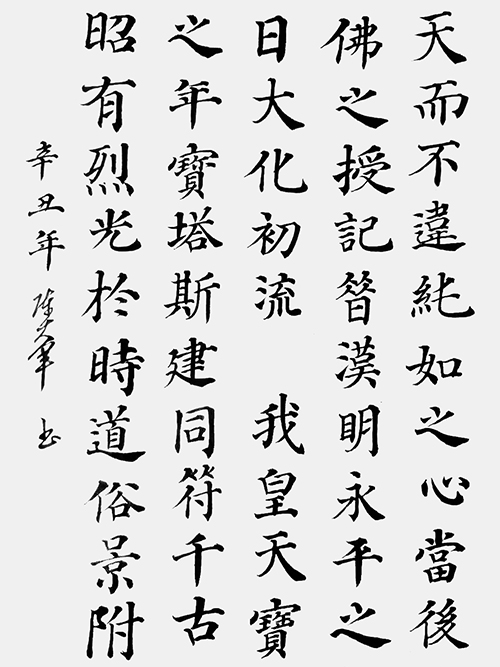 天而不違純如之心當後
佛之授記昔漢明永平之
日大化初流 我皇天寶
之年寶塔斯建同符千古
昭有烈光於時道俗景附
辛丑年 书